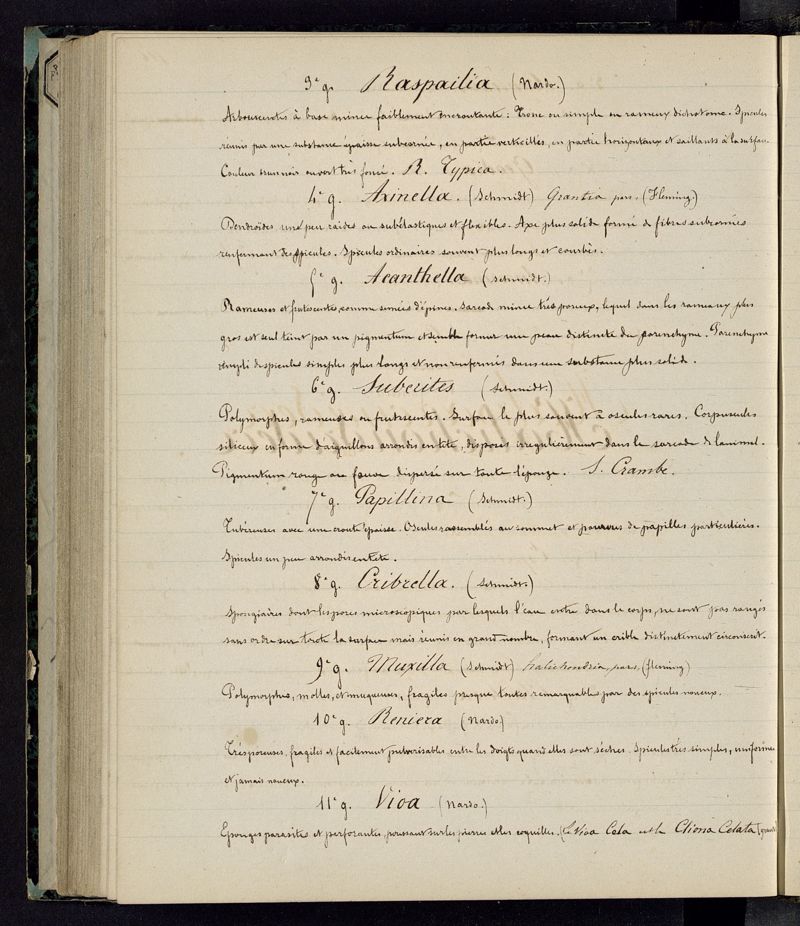 3e g. Raspailia (Nardo.)
Arbourescentes à base mince faiblement encroutante : Tronc ou simple ou rameux dichotome. Spicules
reunis par une substance épaisse subcornée, en partie verticillés, en partie horizontaux et saillants à la surface
Couleur brun noir ou vert très foncé. R. Typica.
4e g. Axinella. (Schmidt) Grantia pars. (Fleming.)
Dendroïdes un peu raides ou subélastiques et flexibles. Axe plus solide formé de fibres subcornées
renfermant des spicules. Spicules ordinaires souvent plus longs et courbés.
5e g. Acanthella (Schmidt.)
Rameuses et frutescentes, comme semées d'épines. Sarcode mince très poreux, lequel dans les rameaux plus
gros est seul teint par un pigmentum et semble former une peau distincte du parenchyme. Parenchyme
rempli de spicules simples plus longs et non renfermés dans une substance plus solide.
6e g. Suberites (Schmidt.)
Polymorphes, rameuses ou frutescentes. Surface le plus souvent à oscules rares. Corpuscules
siliceux en forme d'aiguillons arrondis en tête, disposés irrégulièrement dans le sarcode de l'animal.
Pigmentum rouge ou fauve dispersé sur toute l'éponge. S. Crambe.
7e g. Papillina (Schmidt.)
Tubéreuses avec une croute épaisse. Oscules rassemblés au sommet et pourvus de papilles particulières.
Spicules un peu arrondis en tête.
8e g. Cribrella. (Schmidt.)
Spongiaires dont les pores microscopiques par lesquels l'eau entre dans le corps, ne sont pas rangés
sans ordre sur toute la surface mais réunis en grand nombre, formant un crible distinctement circonscrit.
9e g. Muxilla (Schmidt) halichondria, pars. (Fleming)
Polymorphes, molles, et muqueuses, fragiles presque toutes remarquables par des spicules noueux.
10e g. Reniera (Nardo.)
Très poreuses, fragiles et facilement pulvérisables entre les doigts quand elles sont sèches. Spicules très simples, uniformes
et jamais noueux.
11e g. Vioa (Nardo.)
Eponges parasites et perforantes, poussant sur les pierres et les coquilles. (La Vioa Cela est le Cliona Celata